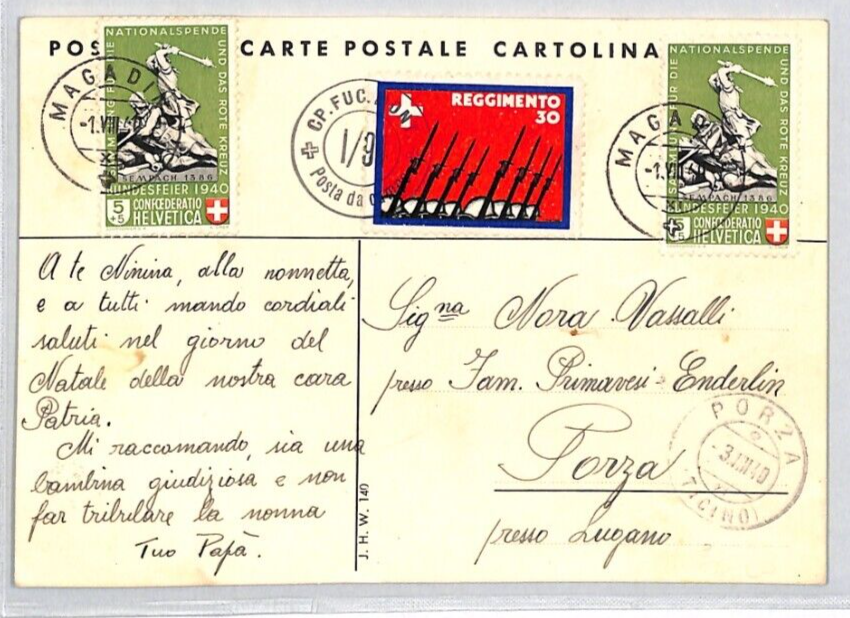 POS CARTE POSTALE CARTOLINA
NATIONALSPENDE
UND DAS ROTE KREUZ
SEMPACH 1386
BUNDESFEIER 1940
5+5 CONFŒDERATIO
HELVETICA
MAGADI
-1.VIII.40
CP. FUC. MON
I/9
Posta da c
REGGIMENTO
30
NATIONALSPENDE
SAMMLUNG FÜR DIE
UND DAS ROTE KREUZ
SEMPACH 1386
BUNDESFEIER 1940
CONFŒDERATIO
HELVETICA
MAGADI
-1.VIII.4
A te Ninina, alla nonnetta,
e a tutti mando cordiali
saluti nel giorno del
Natale della nostra cara
Patria.
Mi raccomando, sia una
bambina giudiziosa e non
far tribrilare la nonna
Tuo Papà.
J. H. W. 140
Signa Nora Vassalli
presso Fam. Primavesi-Enderlin
Porza
presso Lugano
PORZA
-3.VIII.40
(TICINO)